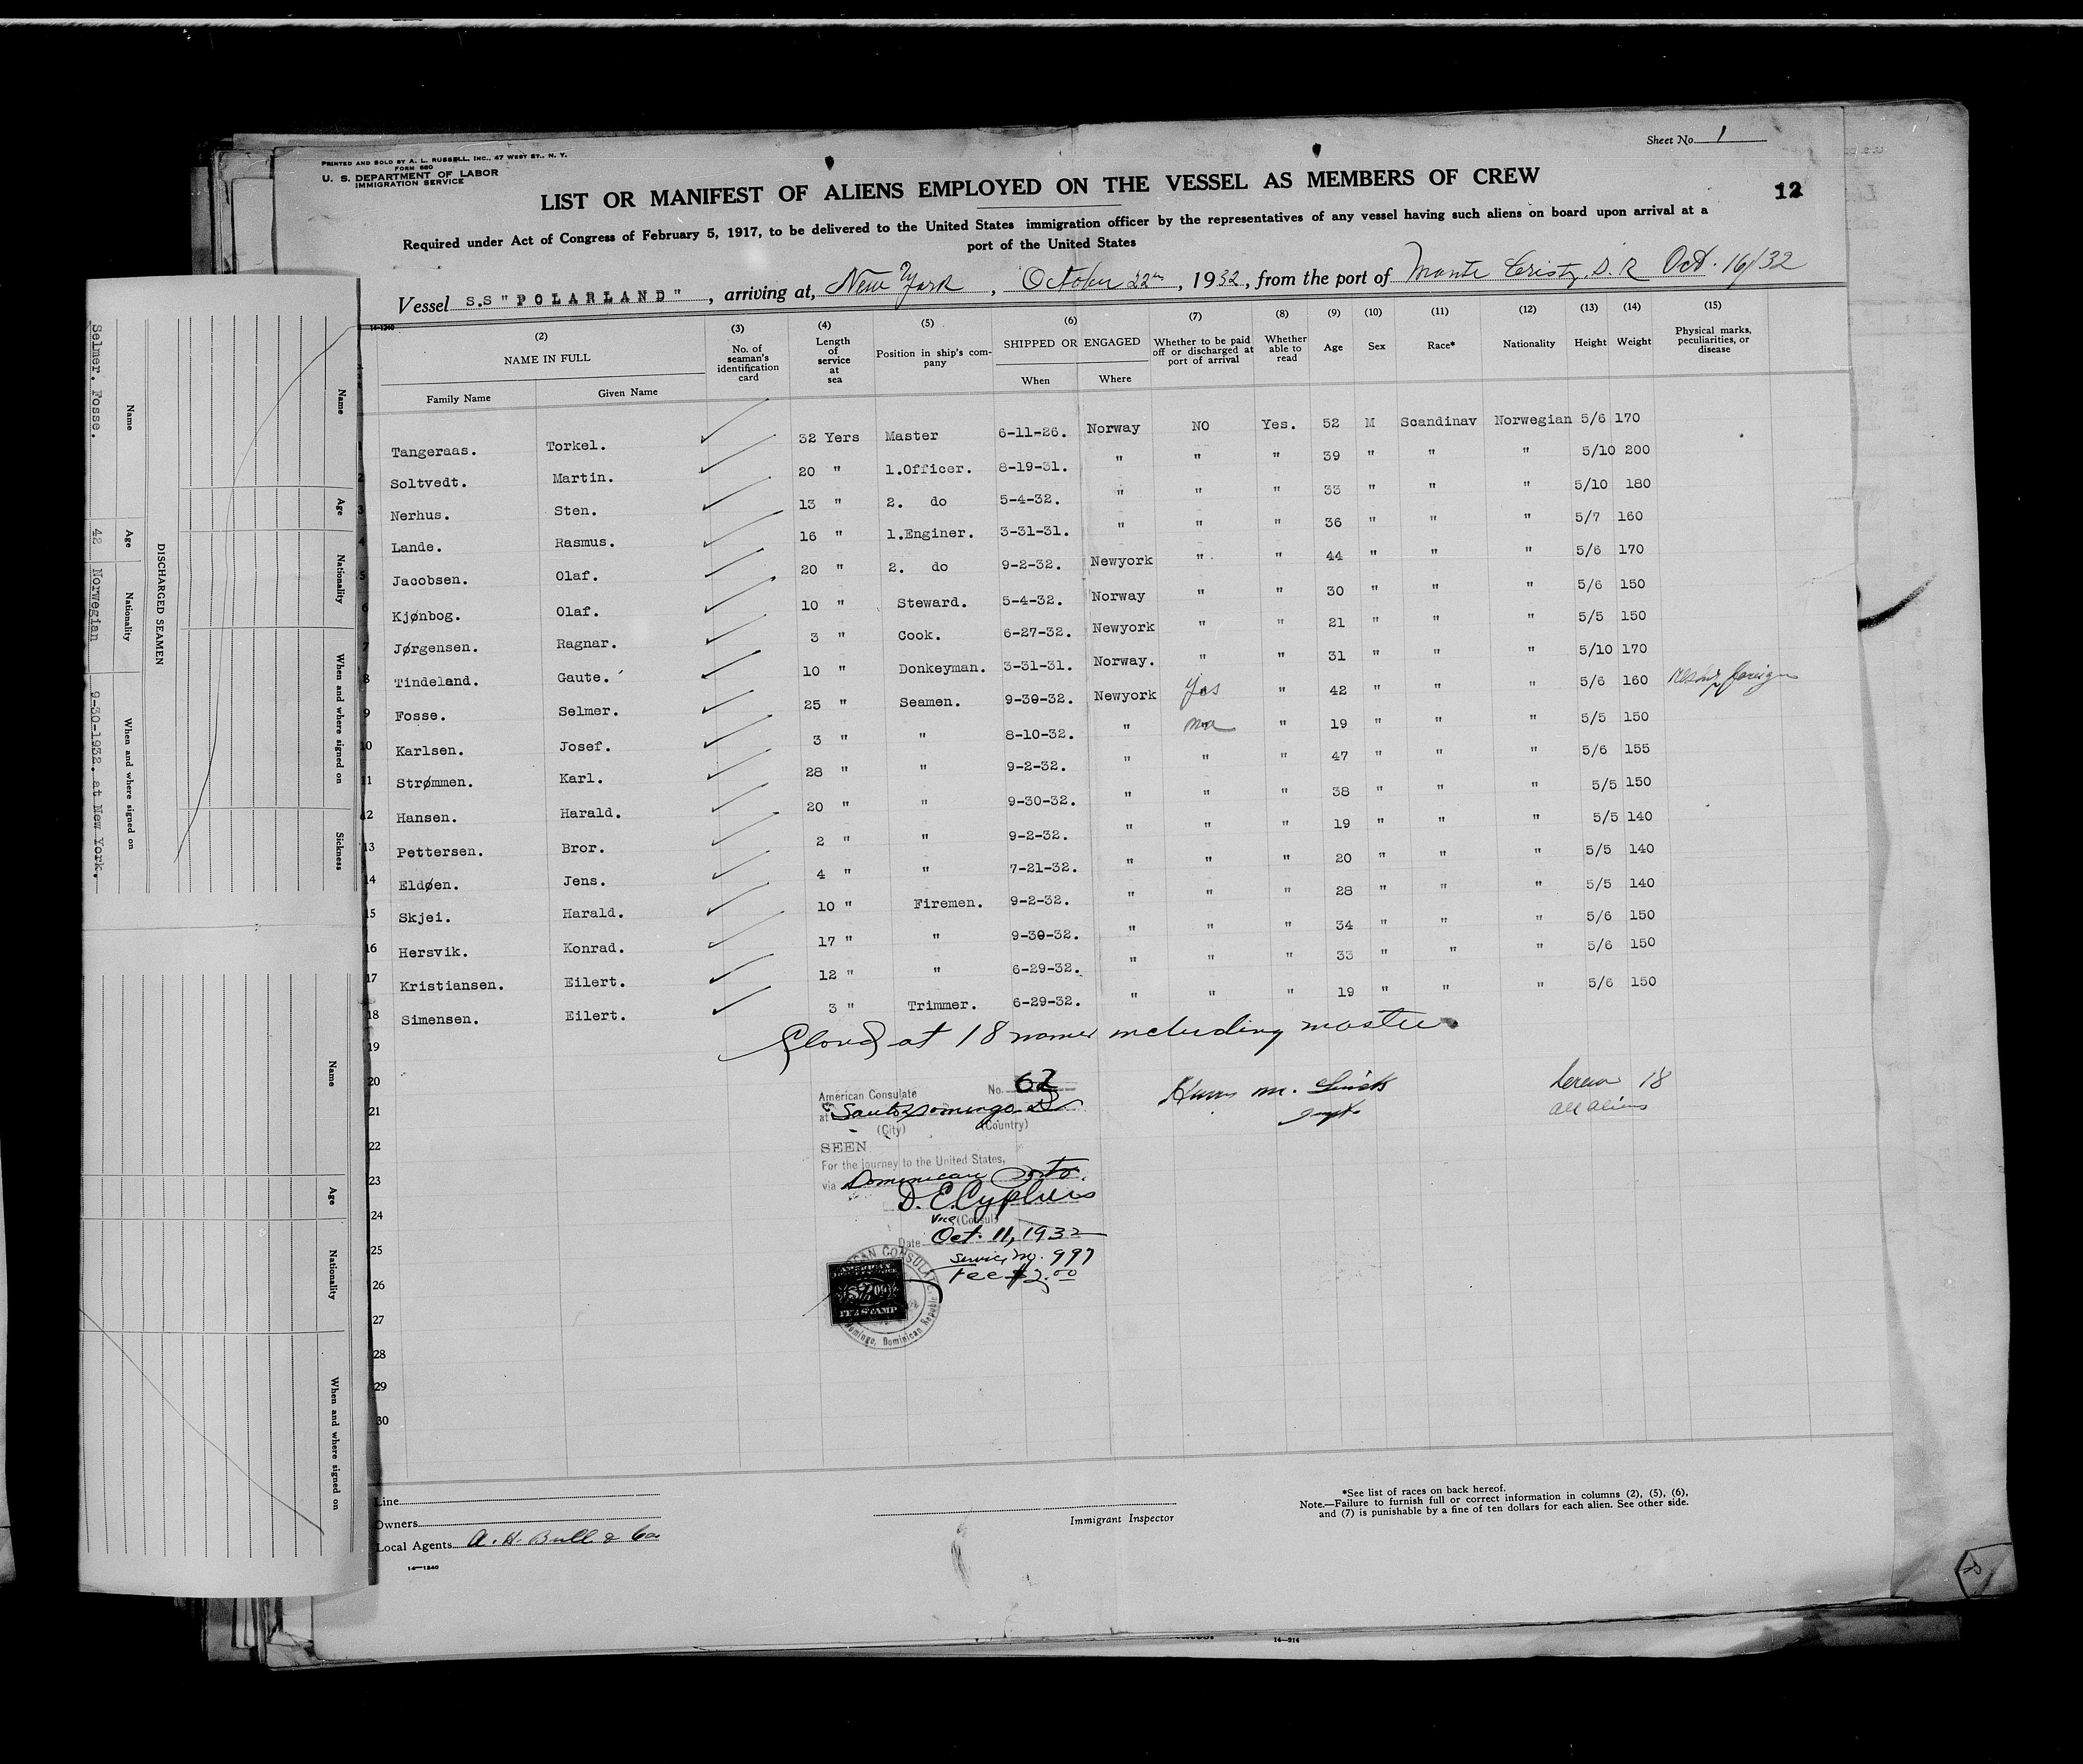 Sheet No. 1
PRINTED AND SOLD BY A. L. RUSSELL, INC., 47 WEST ST., N. Y.
FORM 680
U. S. DEPARTMENT OF LABOR
IMMIGRATION SERVICE
LIST OR MANIFEST OF ALIENS EMPLOYED ON THE VESSEL AS MEMBERS OF CREW
12
Required under Act of Congress of February 5, 1917, to be delivered to the United States immigration officer by the representatives of any vessel having such aliens on board upon arrival at a
port of the United States
Vessel S.S "POLARLAND", arriving at, New York, October 22nd, 1932, from the port of Monte Cristy, D. R Oct. 16/32
14-1240
(2) (3) (4) (5) (6) (7) (8) (9) (10) (11) (12) (13) (14) (15)
NAME IN FULL No. of seaman's identification card Length of service at sea Position in ship's company SHIPPED OR ENGAGED Whether to be paid off or discharged at port of arrival Whether able to read Age Sex Race* Nationality Height Weight Physical marks, peculiarities, or disease
Family Name Given Name When Where
1 Tangeraas. Torkel. 32 Yers Master 6-11-26. Norway NO Yes. 52 M Scandinav Norwegian 5/6 170
2 Soltvedt. Martin. 20 " 1.Officer. 8-19-31. " " " 39 " " " 5/10 200
3 Nerhus. Sten. 13 " 2. do 5-4-32. " " " 33 " " " 5/10 180
4 Lande. Rasmus. 16 " 1.Enginer. 3-31-31. " " " 36 " " " 5/7 160
5 Jacobsen. Olaf. 20 " 2. do 9-2-32. Newyork " " 44 " " " 5/6 170
6 Kjønbog. Olaf. 10 " Steward. 5-4-32. Norway " " 30 " " " 5/6 150
7 Jørgensen. Ragnar. 3 " Cook. 6-27-32. Newyork " " 21 " " " 5/5 150
8 Tindeland. Gaute. 10 " Donkeyman. 3-31-31. Norway. " " 31 " " " 5/10 170
9 Fosse. Selmer. 25 " Seamen. 9-30-32. Newyork Yes " 42 " " " 5/6 160 foreign
10 Karlsen. Josef. 3 " " 8-10-32. " no " 19 " " " 5/5 150
11 Strømmen. Karl. 28 " " 9-2-32. " " " 47 " " " 5/6 155
12 Hansen. Harald. 20 " " 9-30-32. " " " 38 " " " 5/5 150
13 Pettersen. Bror. 2 " " 9-2-32. " " " 19 " " " 5/5 140
14 Eldøen. Jens. 4 " " 7-21-32. " " " 20 " " " 5/5 140
15 Skjei. Harald. 10 " Firemen. 9-2-32. " " " 28 " " " 5/5 140
16 Hersvik. Konrad. 17 " " 9-30-32. " " " 34 " " " 5/6 150
17 Kristiansen. Eilert. 12 " " 6-29-32. " " " 33 " " " 5/6 150
18 Simensen. Eilert. 3 " Trimmer. 6-29-32. " " " 19 " " " 5/6 150
19 Closed at 18 names including master
20
21
22
23
24
25
26
27
28
29
30
American Consulate No. 62
at Santo Domingo
(City) (Country)
SEEN
For the journey to the United States,
via Dominican Ports.
D. E. Cyphers
Vice (Consul)
Date Oct. 11, 1932
Service No. 997
Fee $2.00
FEE STAMP
Domingo, Dominican Republic
Crew 18
all aliens
Line
Owners
Local Agents A. H. Bull & Co
14-1240
Immigrant Inspector
*See list of races on back hereof.
Note.—Failure to furnish full or correct information in columns (2), (5), (6),
and (7) is punishable by a fine of ten dollars for each alien. See other side.
14-214
DISCHARGED SEAMEN
Name Age Nationality When and where signed on
Selmer. Fosse. 42 Norwegian 9-30-1932. at New York.
Name Age Nationality When and where signed on Sickness
Name Age Nationality When and where signed on